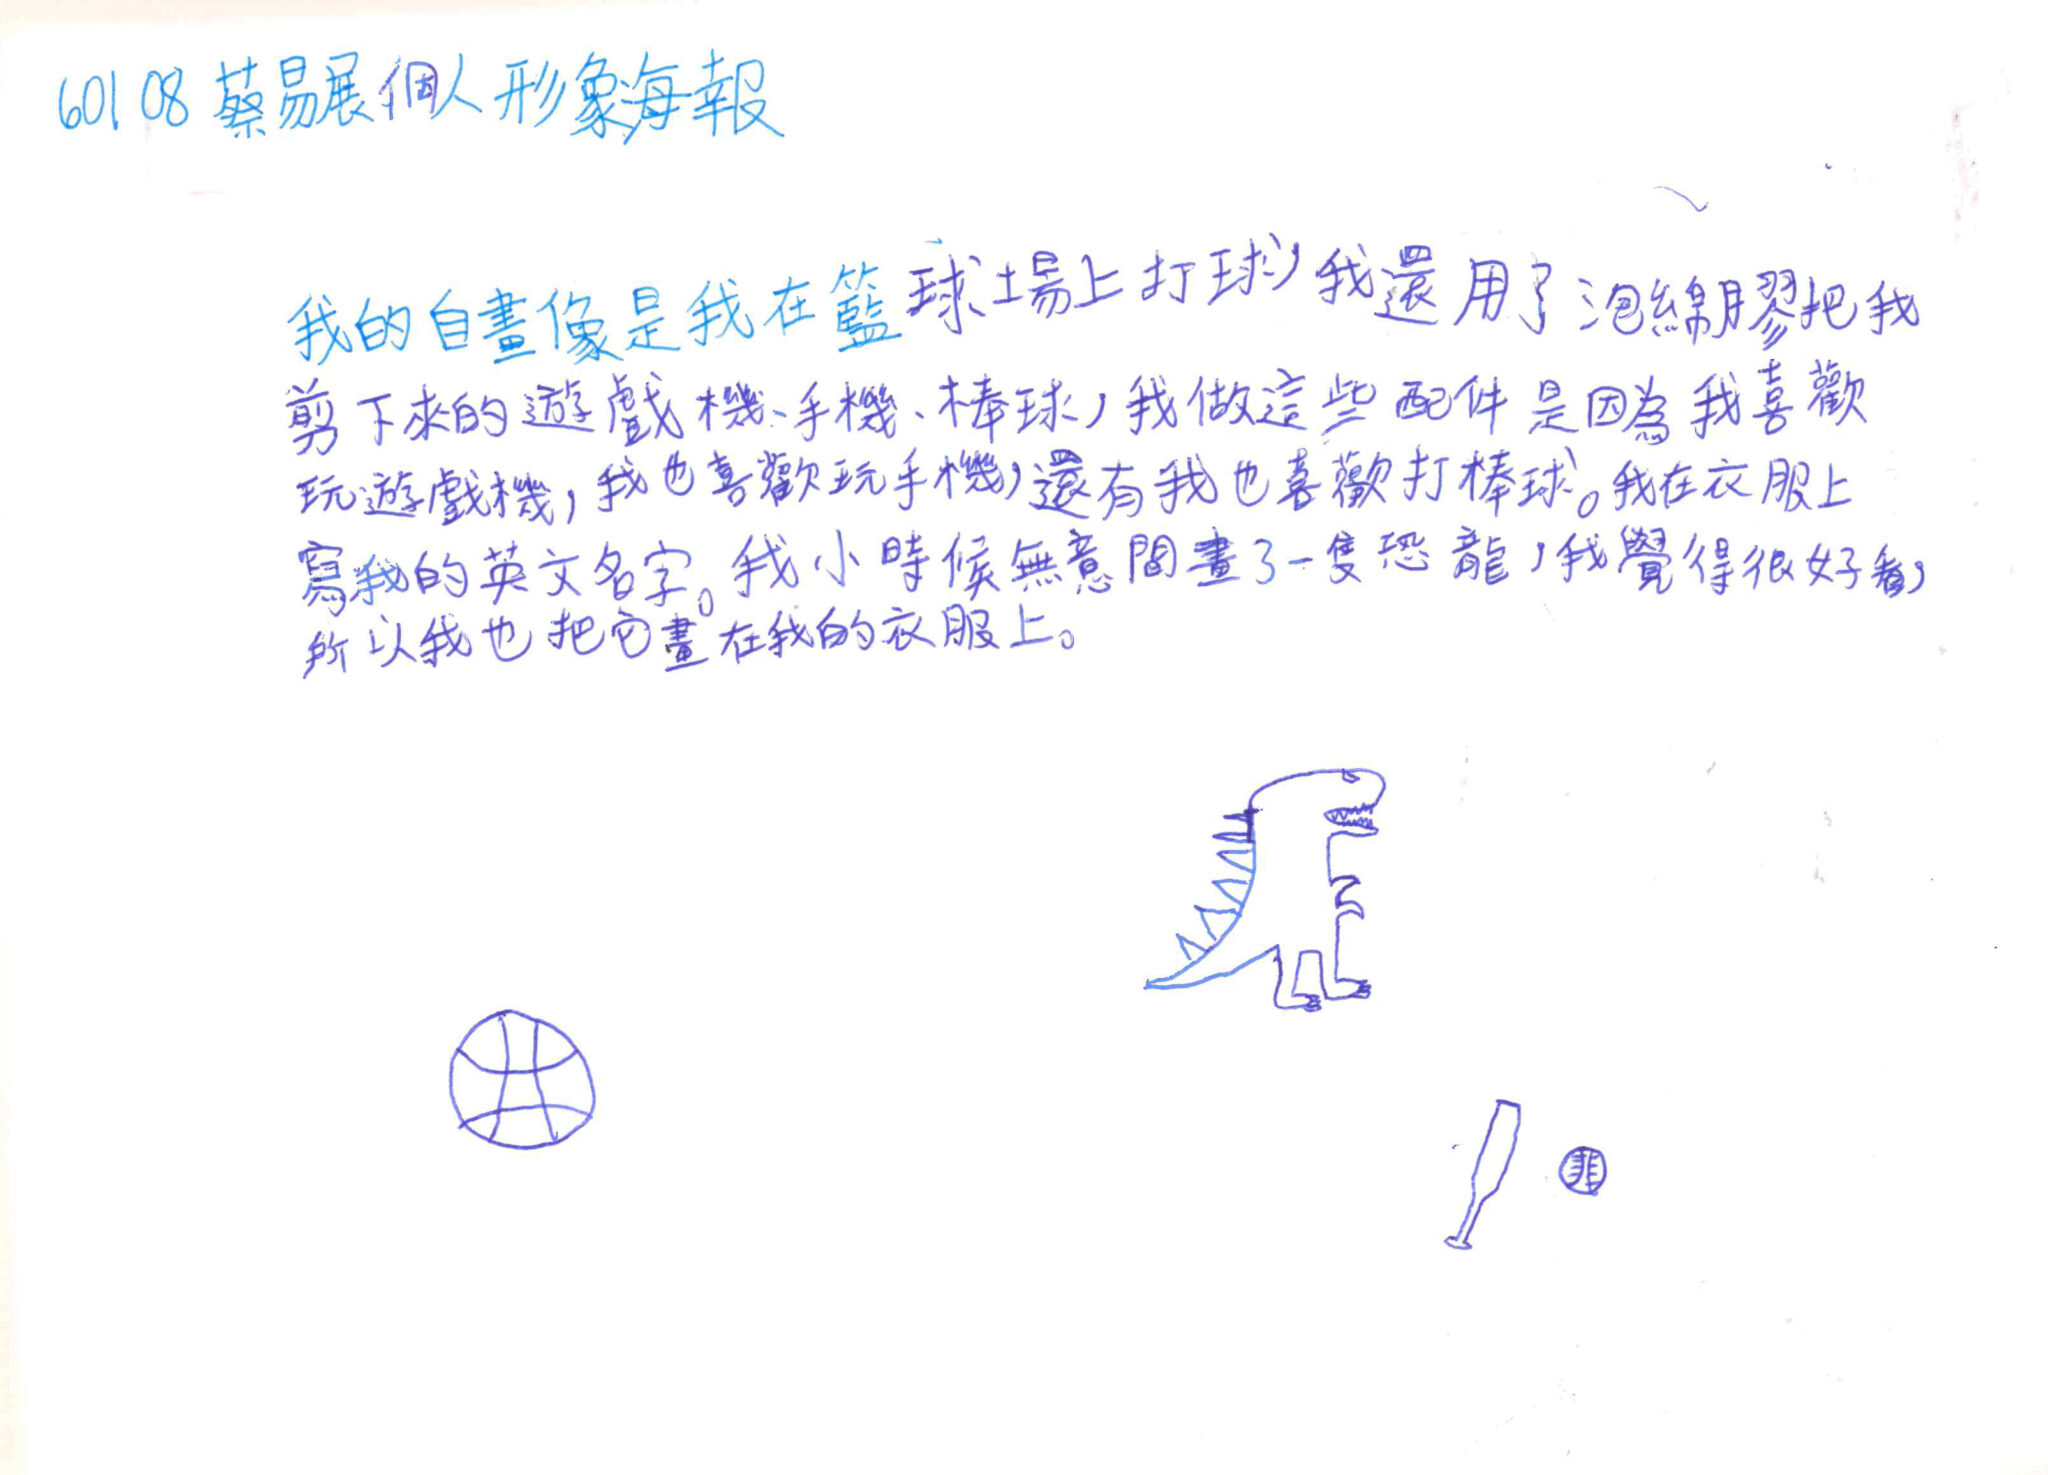 60108蔡易展個人形象海報
我的自畫像是我在籃球場上打球，我還用了泡綿膠把我
剪下來的遊戲機、手機、棒球，我做這些配件是因為我喜歡
玩遊戲機，我也喜歡玩手機，還有我也喜歡打棒球。我在衣服上
寫我的英文名字。我小時候無意間畫了一隻恐龍，我覺得很好看，
所以我也把它畫在我的衣服上。